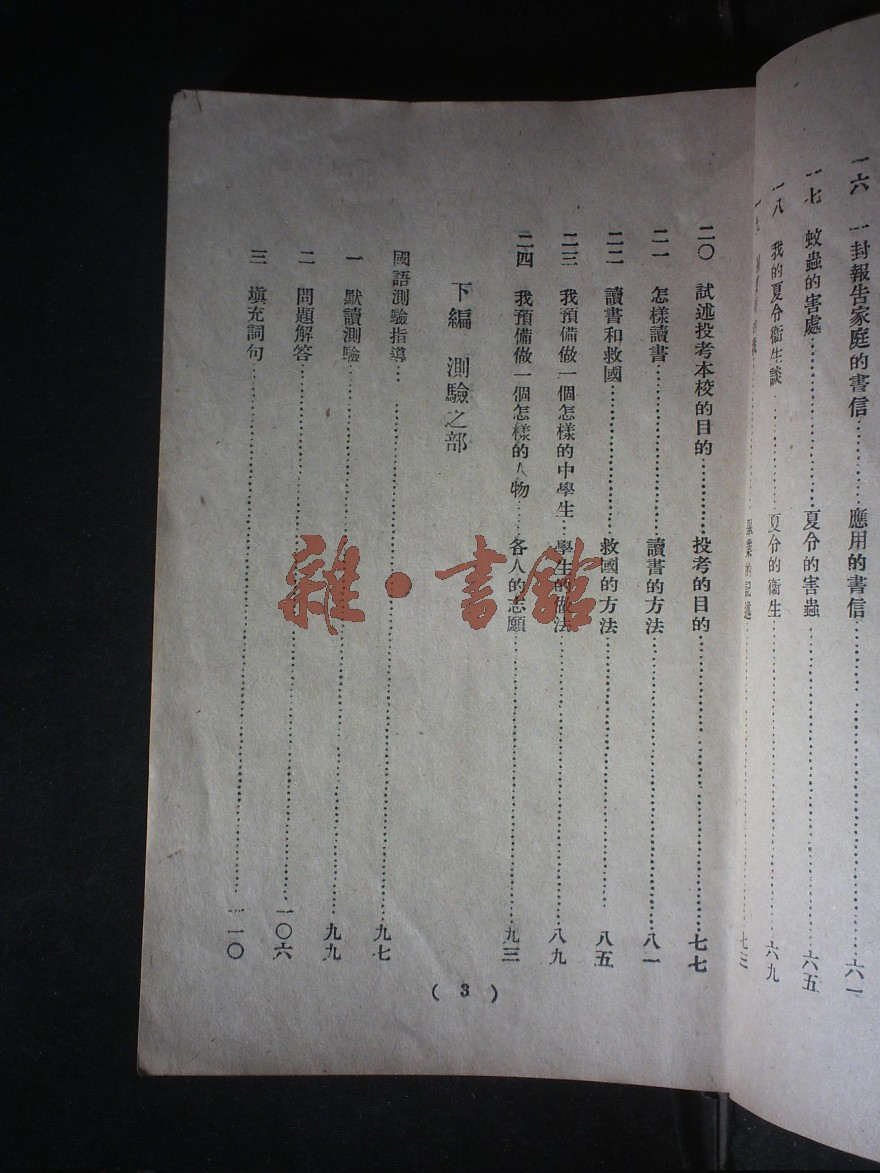 一六 一封報告家庭的書信…………應用的書信…………六一
一七 蚊蟲的害處…………夏令的害蟲…………六五
一八 我的夏令衞生談…………夏令的衞生…………六九
一九
二〇 試述投考本校的目的…………投考的目的…………七七
二一 怎樣讀書…………讀書的方法…………八一
二二 讀書和救國…………救國的方法…………八五
二三 我預備做一個怎樣的中學生…學生的做法…………八九
二四 我預備做一個怎樣的人物……各人的志願…………九三
下編 測驗之部
國語測驗指導…………九七
一 默讀測驗…………九九
二 問題解答…………一〇六
三 塡充詞句…………一一〇
( 3 )
雜·書館